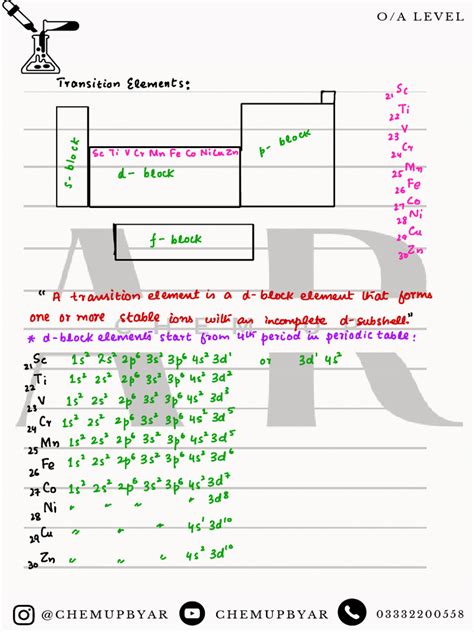 O/A LEVEL
Transition Elements:
s-block
Sc Ti V Cr Mn Fe Co Ni Cu Zn
d-block
p-block
f-block
₂₁Sc
₂₂Ti
₂₃V
₂₄Cr
₂₅Mn
₂₆Fe
₂₇Co
₂₈Ni
₂₉Cu
₃₀Zn
AR
"A transition element is a d-block element that forms
one or more stable ions with an incomplete d-subshell."
* d-block elements start from 4th period in periodic table:
₂₁Sc 1s² 2s² 2p⁶ 3s² 3p⁶ 4s² 3d¹ or 3d¹ 4s²
₂₂Ti 1s² 2s² 2p⁶ 3s² 3p⁶ 4s² 3d²
₂₃V 1s² 2s² 2p⁶ 3s² 3p⁶ 4s² 3d³
₂₄Cr 1s² 2s² 2p⁶ 3s² 3p⁶ 4s¹ 3d⁵
₂₅Mn 1s² 2s² 2p⁶ 3s² 3p⁶ 4s² 3d⁵
₂₆Fe 1s² 2s² 2p⁶ 3s² 3p⁶ 4s² 3d⁶
₂₇Co 1s² 2s² 2p⁶ 3s² 3p⁶ 4s² 3d⁷
₂₈Ni " " " " 3d⁸
₂₉Cu " " " 4s¹ 3d¹⁰
₃₀Zn " " " 4s² 3d¹⁰
@CHEMUPBYAR CHEMUPBYAR 03332200558